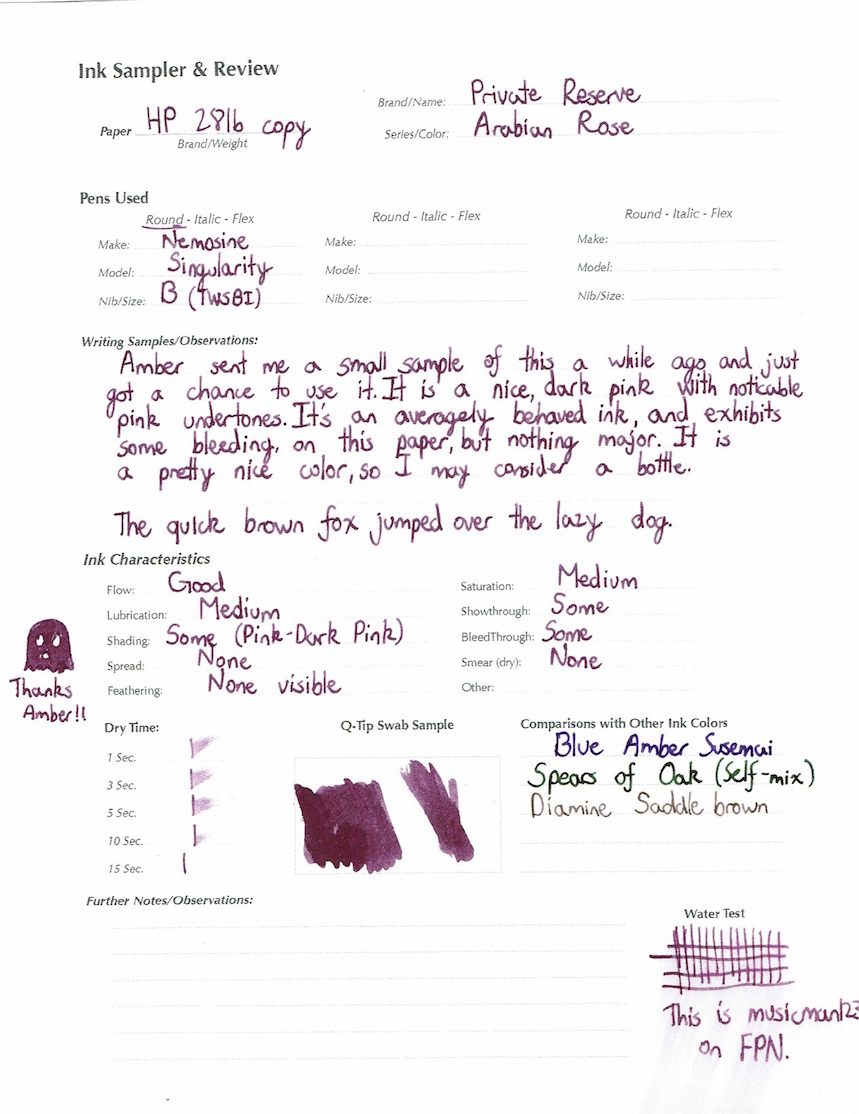 Ink Sampler & Review
Brand/Name: Private Reserve
Paper HP 28lb copy
Brand/Weight
Series/Color: Arabian Rose
Pens Used
Round - Italic - Flex
Make: Nemosine
Model: Singularity
Nib/Size: B (TWSBI)
Round - Italic - Flex
Make:
Model:
Nib/Size:
Round - Italic - Flex
Make:
Model:
Nib/Size:
Writing Samples/Observations:
Amber sent me a small sample of this a while ago and just
got a chance to use it. It is a nice, dark pink with noticable
pink undertones. It's an averagely behaved ink, and exhibits
some bleeding, on this paper, but nothing major. It is
a pretty nice color, so I may consider a bottle.
The quick brown fox jumped over the lazy dog.
Ink Characteristics
Flow: Good
Lubrication: Medium
Shading: Some (Pink-Dark Pink)
Spread: None
Feathering: None visible
Saturation: Medium
Showthrough: Some
BleedThrough: Some
Smear (dry): None
Other:
Thanks
Amber!!
Dry Time:
1 Sec.
3 Sec.
5 Sec.
10 Sec.
15 Sec.
Q-Tip Swab Sample
Comparisons with Other Ink Colors
Blue Amber Susemai
Spears of Oak (Self-mix)
Diamine Saddle brown
Further Notes/Observations:
Water Test
This is musicman123
on FPN.